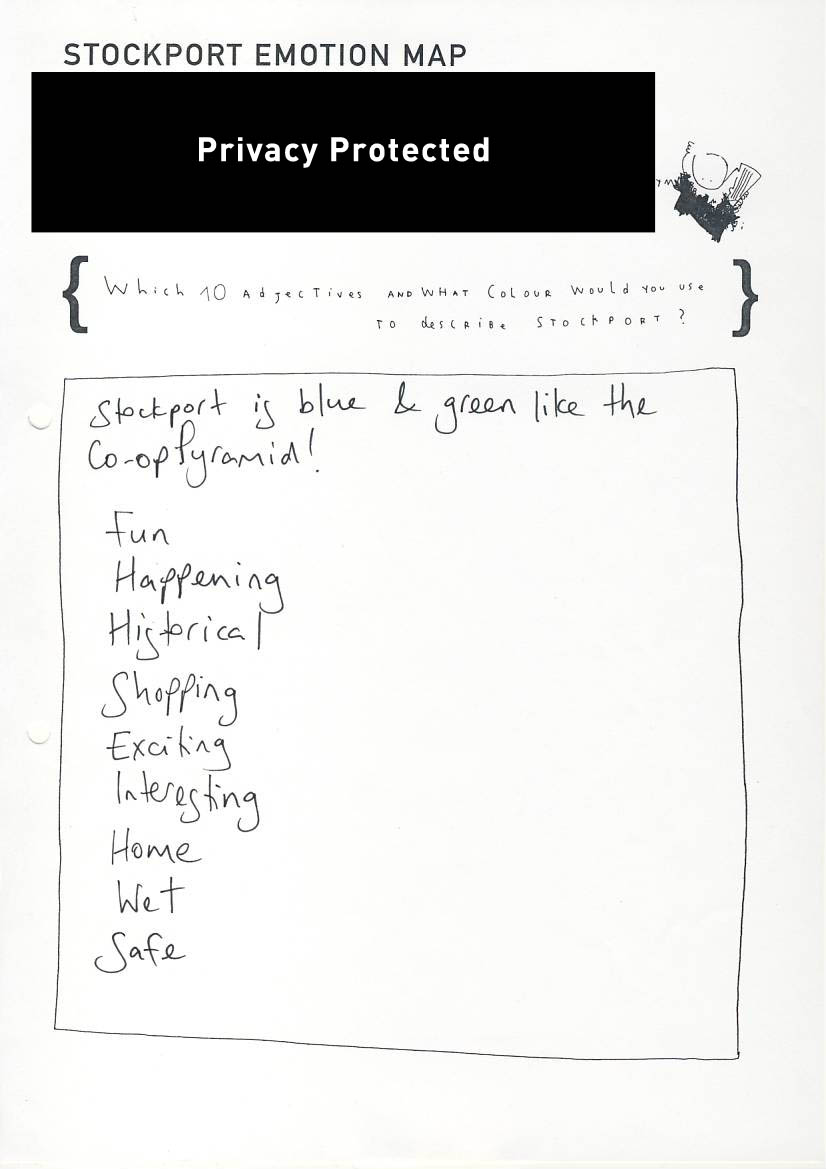 STOCKPORT EMOTION MAP
Privacy Protected
{ Which 10 AdjecTives AND WHAT COLOUR WOULD YOU USE
TO describe STOCKPORT? }
Stockport is blue & green like the
Co-op Pyramid!
Fun
Happening
Historical
Shopping
Exciting
Interesting
Home
Wet
Safe